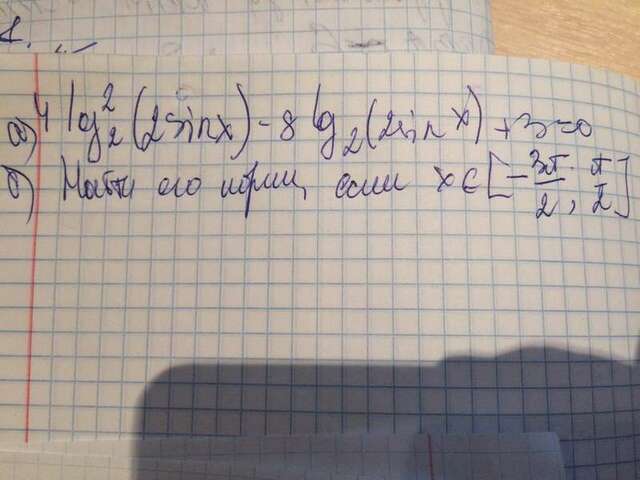 а) 4 log₂²(2sinx) - 8 log₂(2sinx) + 3 = 0
б) Найти его корни, если x ∈ [-3π/2; π/2]